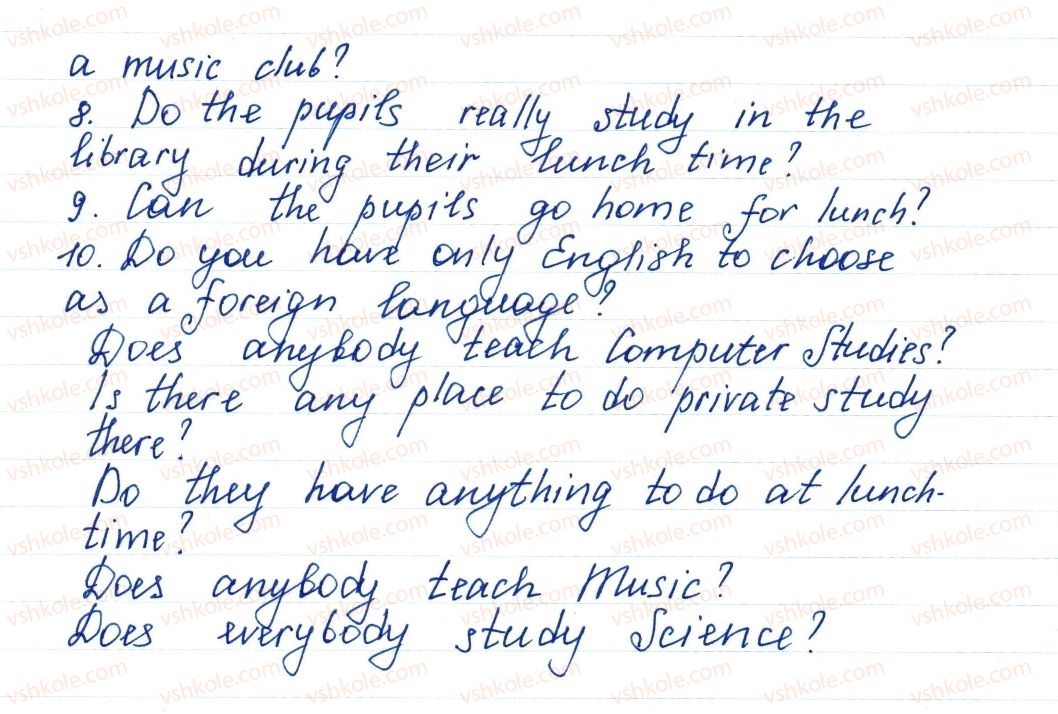 a music club?
8. Do the pupils really study in the
library during their lunch time?
9. Can the pupils go home for lunch?
10. Do you have only English to choose
as a foreign language?
Does anybody teach Computer Studies?
Is there any place to do private study
there?
Do they have anything to do at lunch-
time?
Does anybody teach Music?
Does everybody study Science?